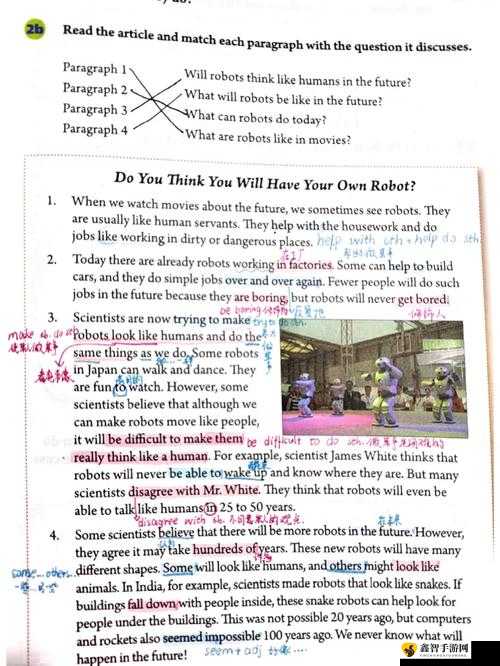 2b Read the article and match each paragraph with the question it discusses.
Paragraph 1
Paragraph 2
Paragraph 3
Paragraph 4
Will robots think like humans in the future?
What will robots be like in the future?
What can robots do today?
What are robots like in movies?
Do You Think You Will Have Your Own Robot?
1. When we watch movies about the future, we sometimes see robots. They
are usually like human servants. They help with the housework and do
jobs like working in dirty or dangerous places. help with sth = help do sth.
2. Today there are already robots working in factories. Some can help to build
cars, and they do simple jobs over and over again. Fewer people will do such
jobs in the future because they are boring, but robots will never get bored.
3. Scientists are now trying to make try to do sth.
make sb. do sth
robots look like humans and do the
same things as we do. Some robots
in Japan can walk and dance. They
are fun to watch. However, some
scientists believe that although we
can make robots move like people,
it will be difficult to make them be difficult to do sth.
really think like a human. For example, scientist James White thinks that
robots will never be able to wake up and know where they are. But many
scientists disagree with Mr. White. They think that robots will even be
able to talk like humans in 25 to 50 years.
disagree with sb. 不同意某人的观点.
4. Some scientists believe that there will be more robots in the future. However,
they agree it may take hundreds of years. These new robots will have many
some... others...
different shapes. Some will look like humans, and others might look like
animals. In India, for example, scientists made robots that look like snakes. If
buildings fall down with people inside, these snake robots can help look for
people under the buildings. This was not possible 20 years ago, but computers
and rockets also seemed impossible 100 years ago. We never know what will
happen in the future! seem + adj
鑫智手游网